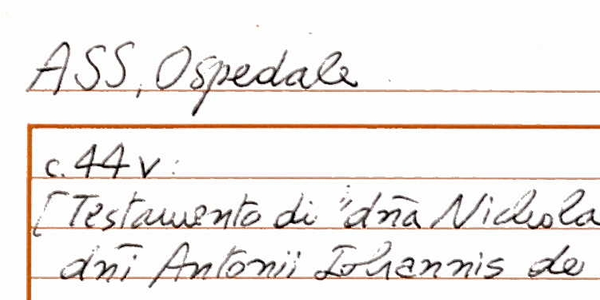 ASS, Ospedale
c. 44 v:
[Testamento di "dn̄a Nichola
dnī Antonii Iohannis de